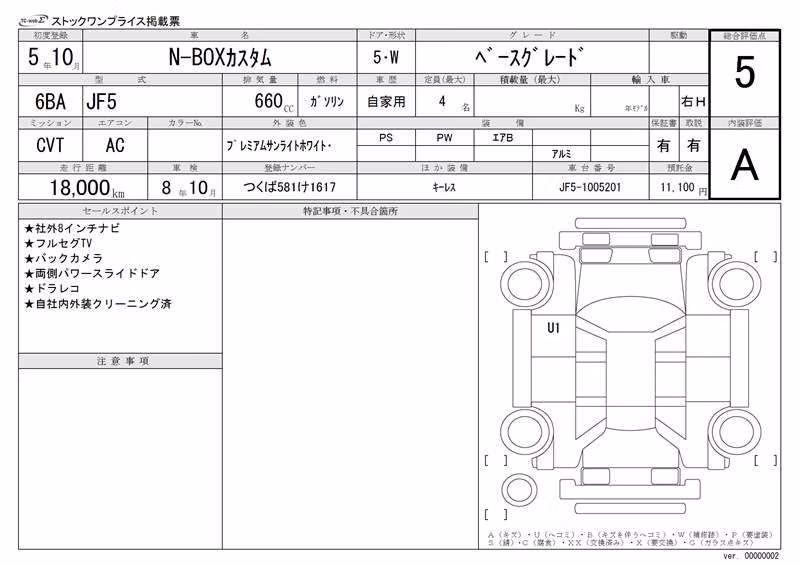 TC-webΣ ストックワンプライス掲載票
初度登録 車名 ドア・形状 グレード 駆動 総合評価点
5年10月 N-BOXカスタム 5・W ﾍﾞｰｽｸﾞﾚｰﾄﾞ 5
型式 排気量 燃料 車歴 定員(最大) 積載量(最大) 輸入車
6BA JF5 660CC ｶﾞｿﾘﾝ 自家用 4名 Kg 年ﾓﾃﾞﾙ 右H
ミッション エアコン カラーNo. 外装色 装備 保証書 取説 内装評価
CVT AC ﾌﾟﾚﾐｱﾑｻﾝﾗｲﾄﾎﾜｲﾄ・ PS PW ｴｱB 有 有 A
ｱﾙﾐ
走行距離 車検 登録ナンバー ほか装備 車台番号 預託金
18,000km 8年10月 つくば581け1617 ｷｰﾚｽ JF5-1005201 11,100円
セールスポイント 特記事項・不具合箇所
★社外8インチナビ
★フルセグTV
★バックカメラ
★両側パワースライドドア
★ドラレコ
★自社内外装クリーニング済
注意事項
[ ] [ ]
U1
[ ] [ ]
[ ]
A(キズ)・U(ヘコミ)・B(キズを伴うヘコミ)・W(補修跡)・P(要塗装)
S(錆)・C(腐食)・XX(交換済み)・X(要交換)・G(ガラス点キズ)
ver. 00000002